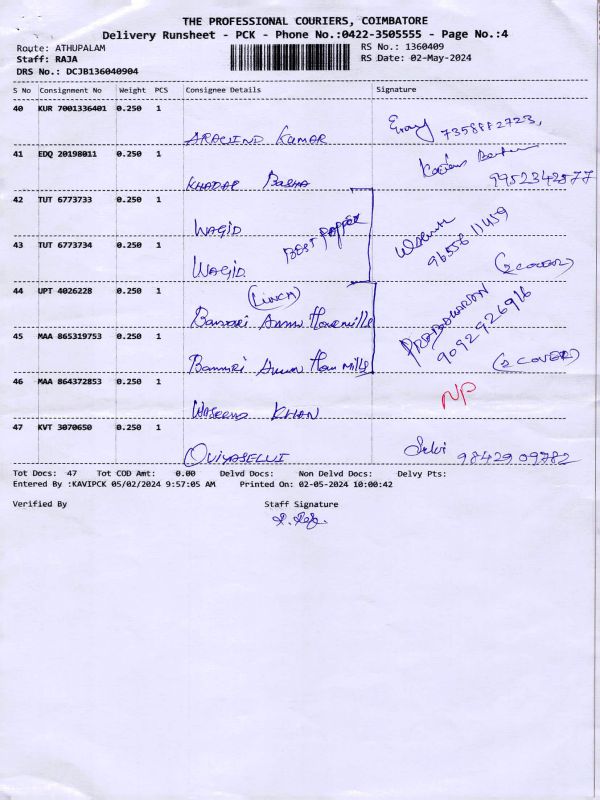 THE PROFESSIONAL COURIERS, COIMBATORE
Delivery Runsheet - PCK - Phone No.:0422-3505555 - Page No.:4
Route: ATHUPALAM RS No.: 1360409
Staff: RAJA RS Date: 02-May-2024
DRS No.: DCJB136040904
S No Consignment No Weight PCS Consignee Details Signature
40 KUR 7001336401 0.250 1
ARAVIND KUMAR
41 EDQ 20198011 0.250 1
KHADAR BASHA 9952342577
42 TUT 6773733 0.250 1
WAGID BEST PAPPER
9655611459
43 TUT 6773734 0.250 1
WAGID (2 COVER)
44 UPT 4026228 0.250 1
Bannari Amman
45 MAA 865319753 0.250 1
9092926916
Bannari Amman Mills (2 COVER)
46 MAA 864372853 0.250 1
NP
WASEEMA KHAN
47 KVT 3070650 0.250 1
OVIYASELVI Selvi 9842909782
Tot Docs: 47 Tot COD Amt: 0.00 Delvd Docs: Non Delvd Docs: Delvy Pts:
Entered By :KAVIPCK 05/02/2024 9:57:05 AM Printed On: 02-05-2024 10:00:42
Verified By Staff Signature